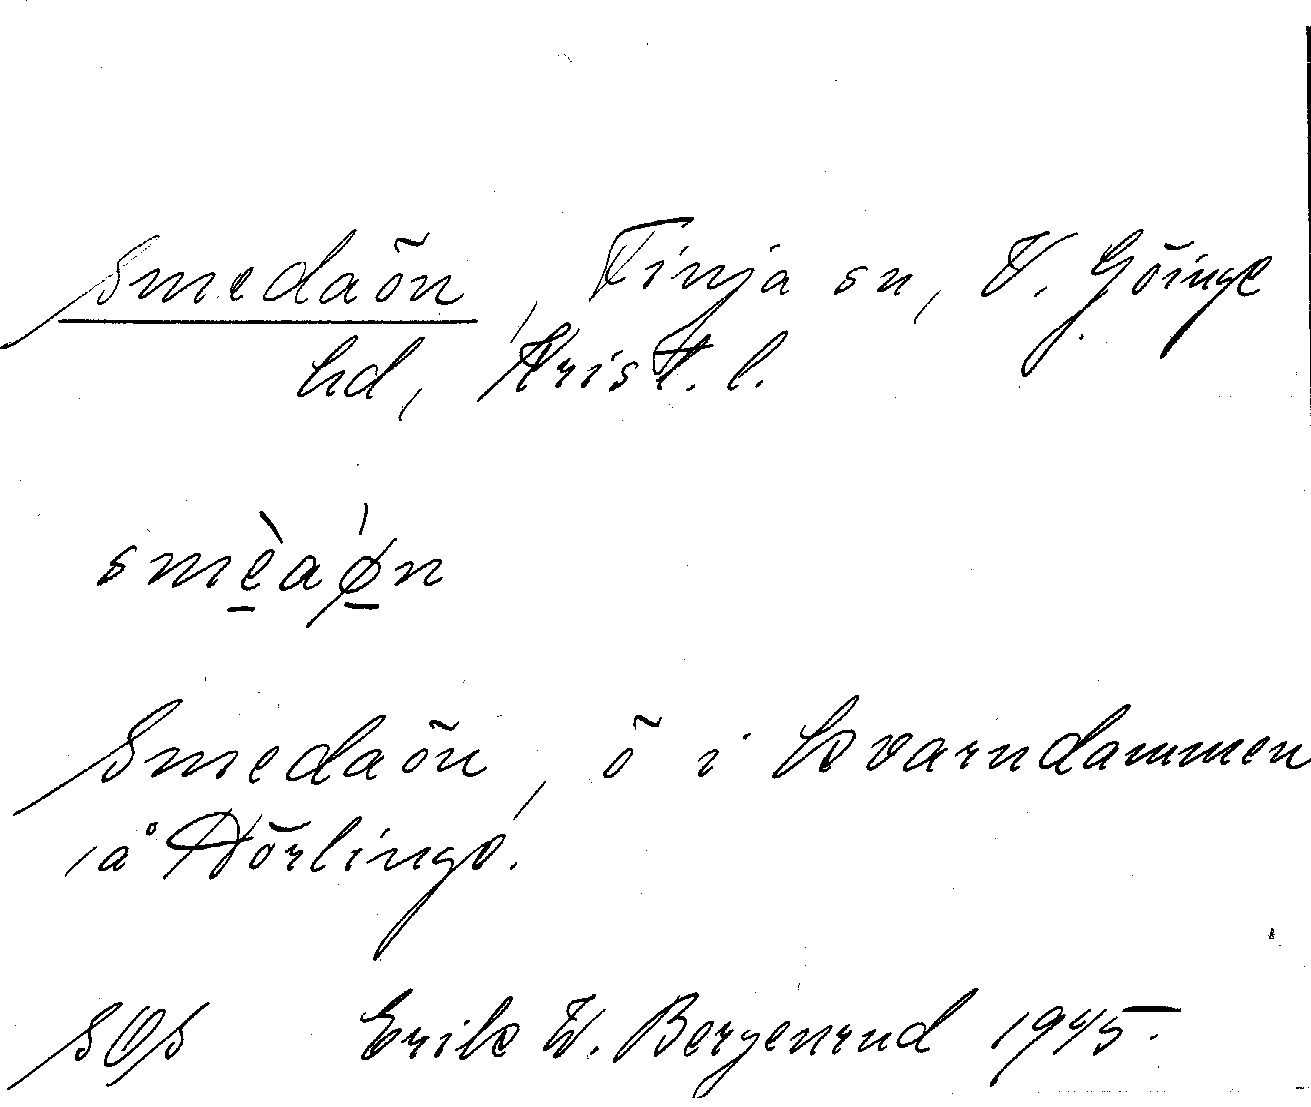 Smedaön, Finja sn, V. Göinge
hd, Krist. l.
smèaǿn
Smedaön, ö i kvarndammen
på Hörlinge.
SOS Erik W. Bergenrud 1945.